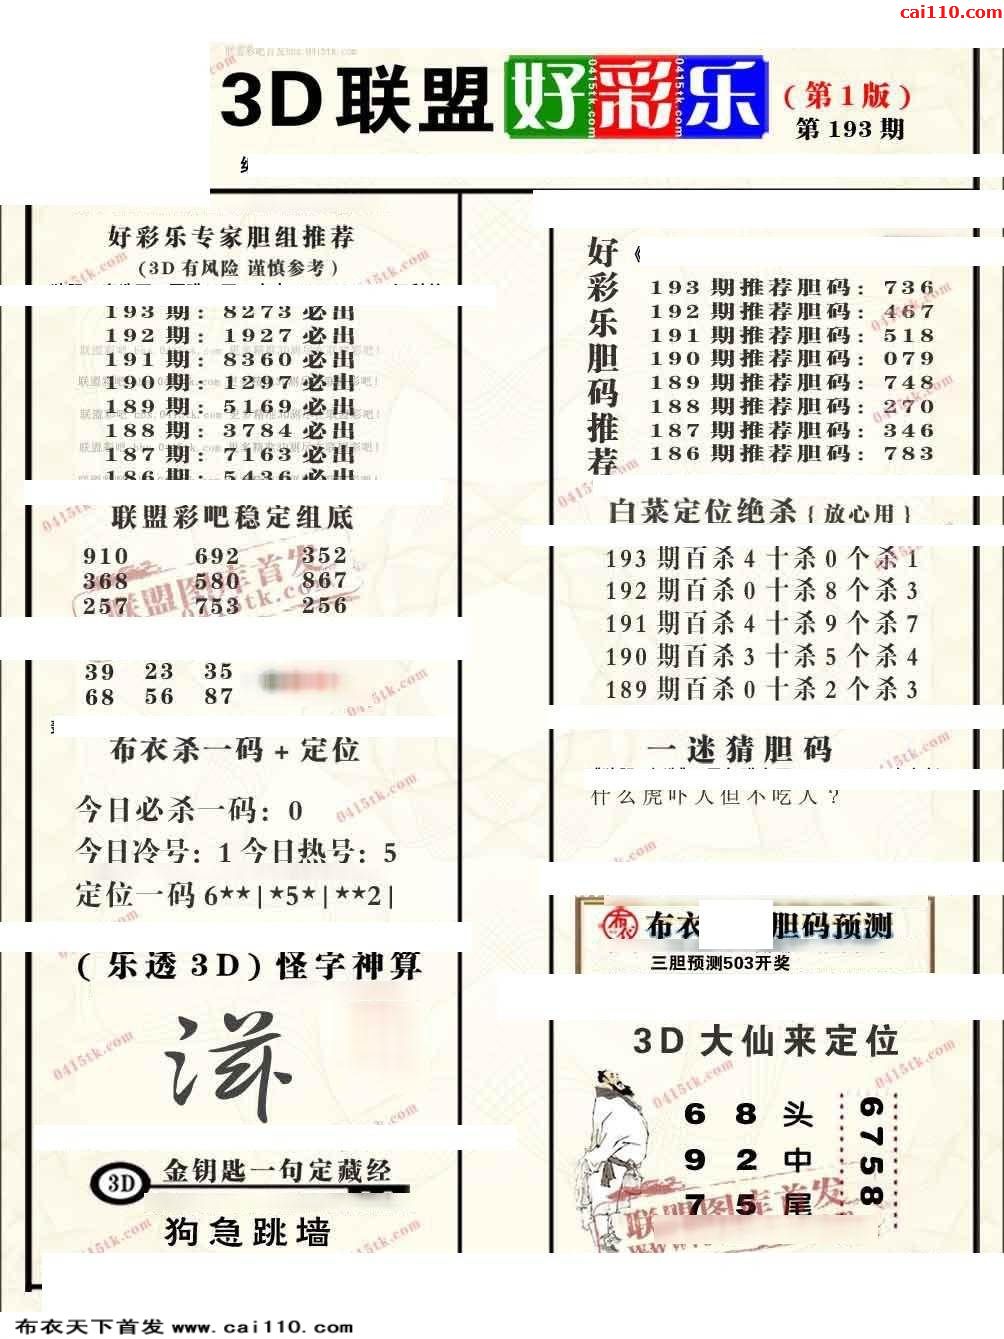 cai110.com
3D联盟好彩乐(第1版)
第193期
好彩乐专家胆组推荐
(3D有风险 谨慎参考)
193期: 8273必出
192期: 1927必出
191期: 8360必出
190期: 1297必出
189期: 5169必出
188期: 3784必出
187期: 7163必出
186期: 5436必出
联盟彩吧稳定组底
910 692 352
368 580 867
257 753 256
39 23 35
68 56 87
布衣杀一码+定位
今日必杀一码: 0
今日冷号: 1今日热号: 5
定位一码6**|*5*|**2|
(乐透3D)怪字神算
3D 金钥匙一句定藏经
狗急跳墙
好彩乐胆码推荐
193期推荐胆码: 736
192期推荐胆码: 467
191期推荐胆码: 518
190期推荐胆码: 079
189期推荐胆码: 748
188期推荐胆码: 270
187期推荐胆码: 346
186期推荐胆码: 783
白菜定位绝杀{放心用}
193期百杀4十杀0个杀1
192期百杀0十杀8个杀3
191期百杀4十杀9个杀7
190期百杀3十杀5个杀4
189期百杀0十杀2个杀3
一迷猜胆码
什么虎吓人但不吃人?
布衣 布衣 胆码预测
三胆预测503开奖
3D大仙来定位
6 8头
9 2中
7 5尾
6758
联盟图库首发
联盟图库首发
0415tk.com
布衣天下首发 www.cai110.com